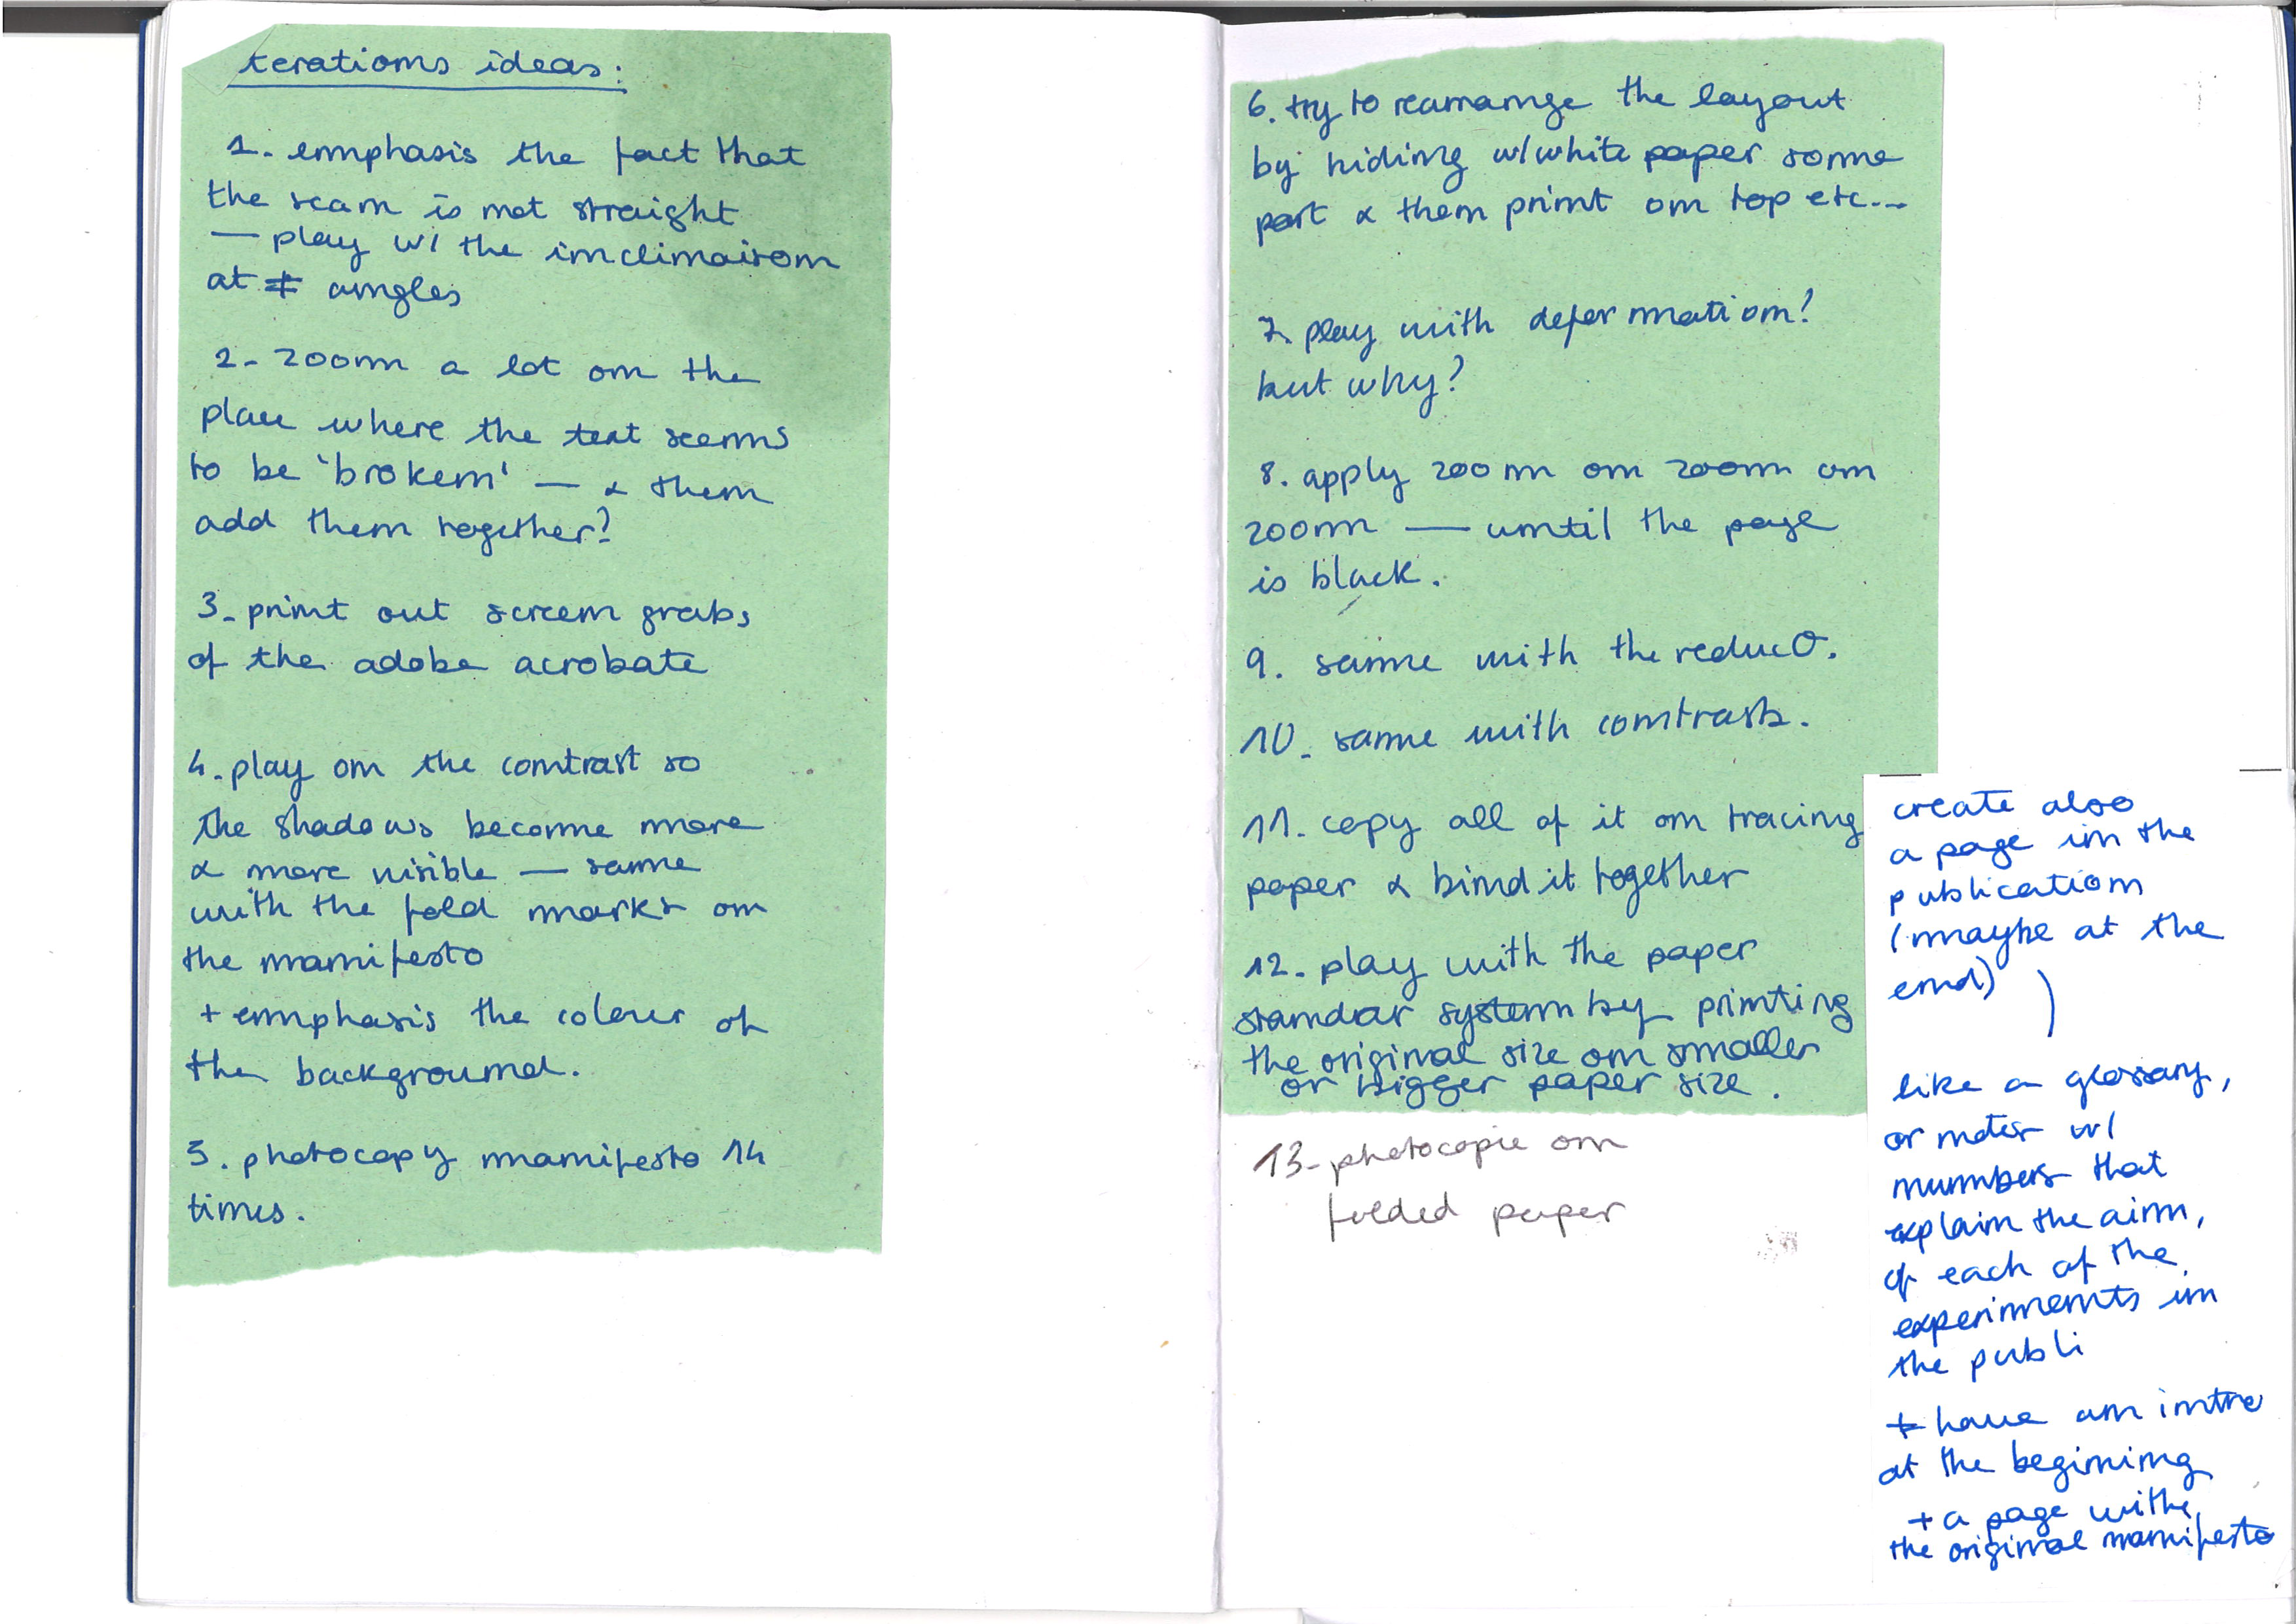 terations ideas:
1. emphasis the fact that
the scan is not straight
— play w/ the inclinaison
at ≠ angles
2. zoom a lot on the
place where the text seems
to be 'broken' — & then
add them together?
3. print out screen grabs
of the adobe acrobate
4. play on the contrast so
the shadows become more
& more visible — same
with the fold marks on
the manifesto
+ emphasis the colour of
the background.
5. photocopy manifesto 14
times.
6. try to rearrange the layout
by hiding w/ white paper some
part & then print on top etc...
7. play with deformation?
but why?
8. apply zoom on zoom on
zoom — until the page
is black.
9. same with the reducᶿ.
10. same with contrasts.
11. copy all of it on tracing
paper & bind it together
12. play with the paper
standar system by printing
the original size on smaller
or bigger paper size.
13. photocopie on
folded paper
create also
a page in the
publication
(maybe at the
end)
like a glossary,
or notes w/
numbers that
explain the aim,
of each of the
experiments in
the publi
+ have an intro
at the begining
+ a page withe
the original manifesto